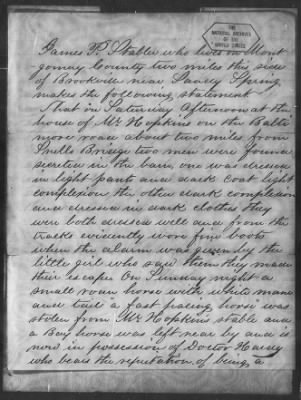 THE
NATIONAL ARCHIVES
OF THE
UNITED STATES
James P. Stabler who lives in Mont
gomey County two miles this side
of Brookville near Sandy Spring
makes the following statement
That on Saturday Afternoon at the
house of Mr Hopkins on the Balti
more road about two miles from
Bridge two men were found
secreted in the barn, one was dressed
in light pants and dark coat light
complexion the other dark complexion
and dressed in dark clothes they
were both dressed well and from the
tracks evidently wore fine boots
when the alarm was given by the
little girl who saw them they made
their escape On Sunday night a
small roan horse with white mane
and tail a fast pacing horse was
stolen from Mr Hopkins stable and
a Bay horse was left near by and is
now in possession of Doctor
who bears the reputation of being a